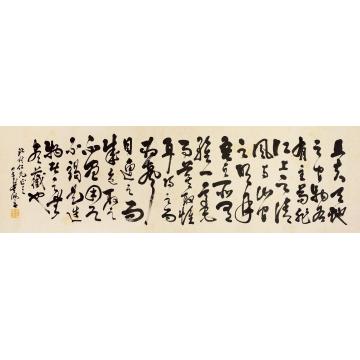 且夫天地
之間物各
有主苟非
江上之清
風与山間
之明月
吾之所有
雖一毫
而莫取惟
耳得之而
為聲
目遇之而
成色取之
無禁用之
不竭是造
物者之無
盡藏也